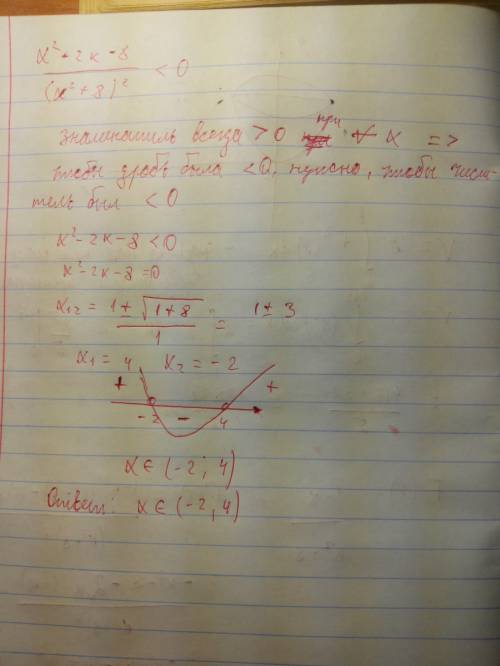 x² - 2x - 8
(x² + 8)² < 0
знаменатель всегда > 0 при ∀ x =>
чтобы дробь была < 0, нужно, чтобы числи-
тель был < 0
x² - 2x - 8 < 0
x² - 2x - 8 = 0
x₁₂ = 1 ± √(1 + 8) / 1 = 1 ± 3
x₁ = 4 x₂ = -2
+ +
-2 - 4
x ∈ (-2; 4)
Ответ: x ∈ (-2, 4)